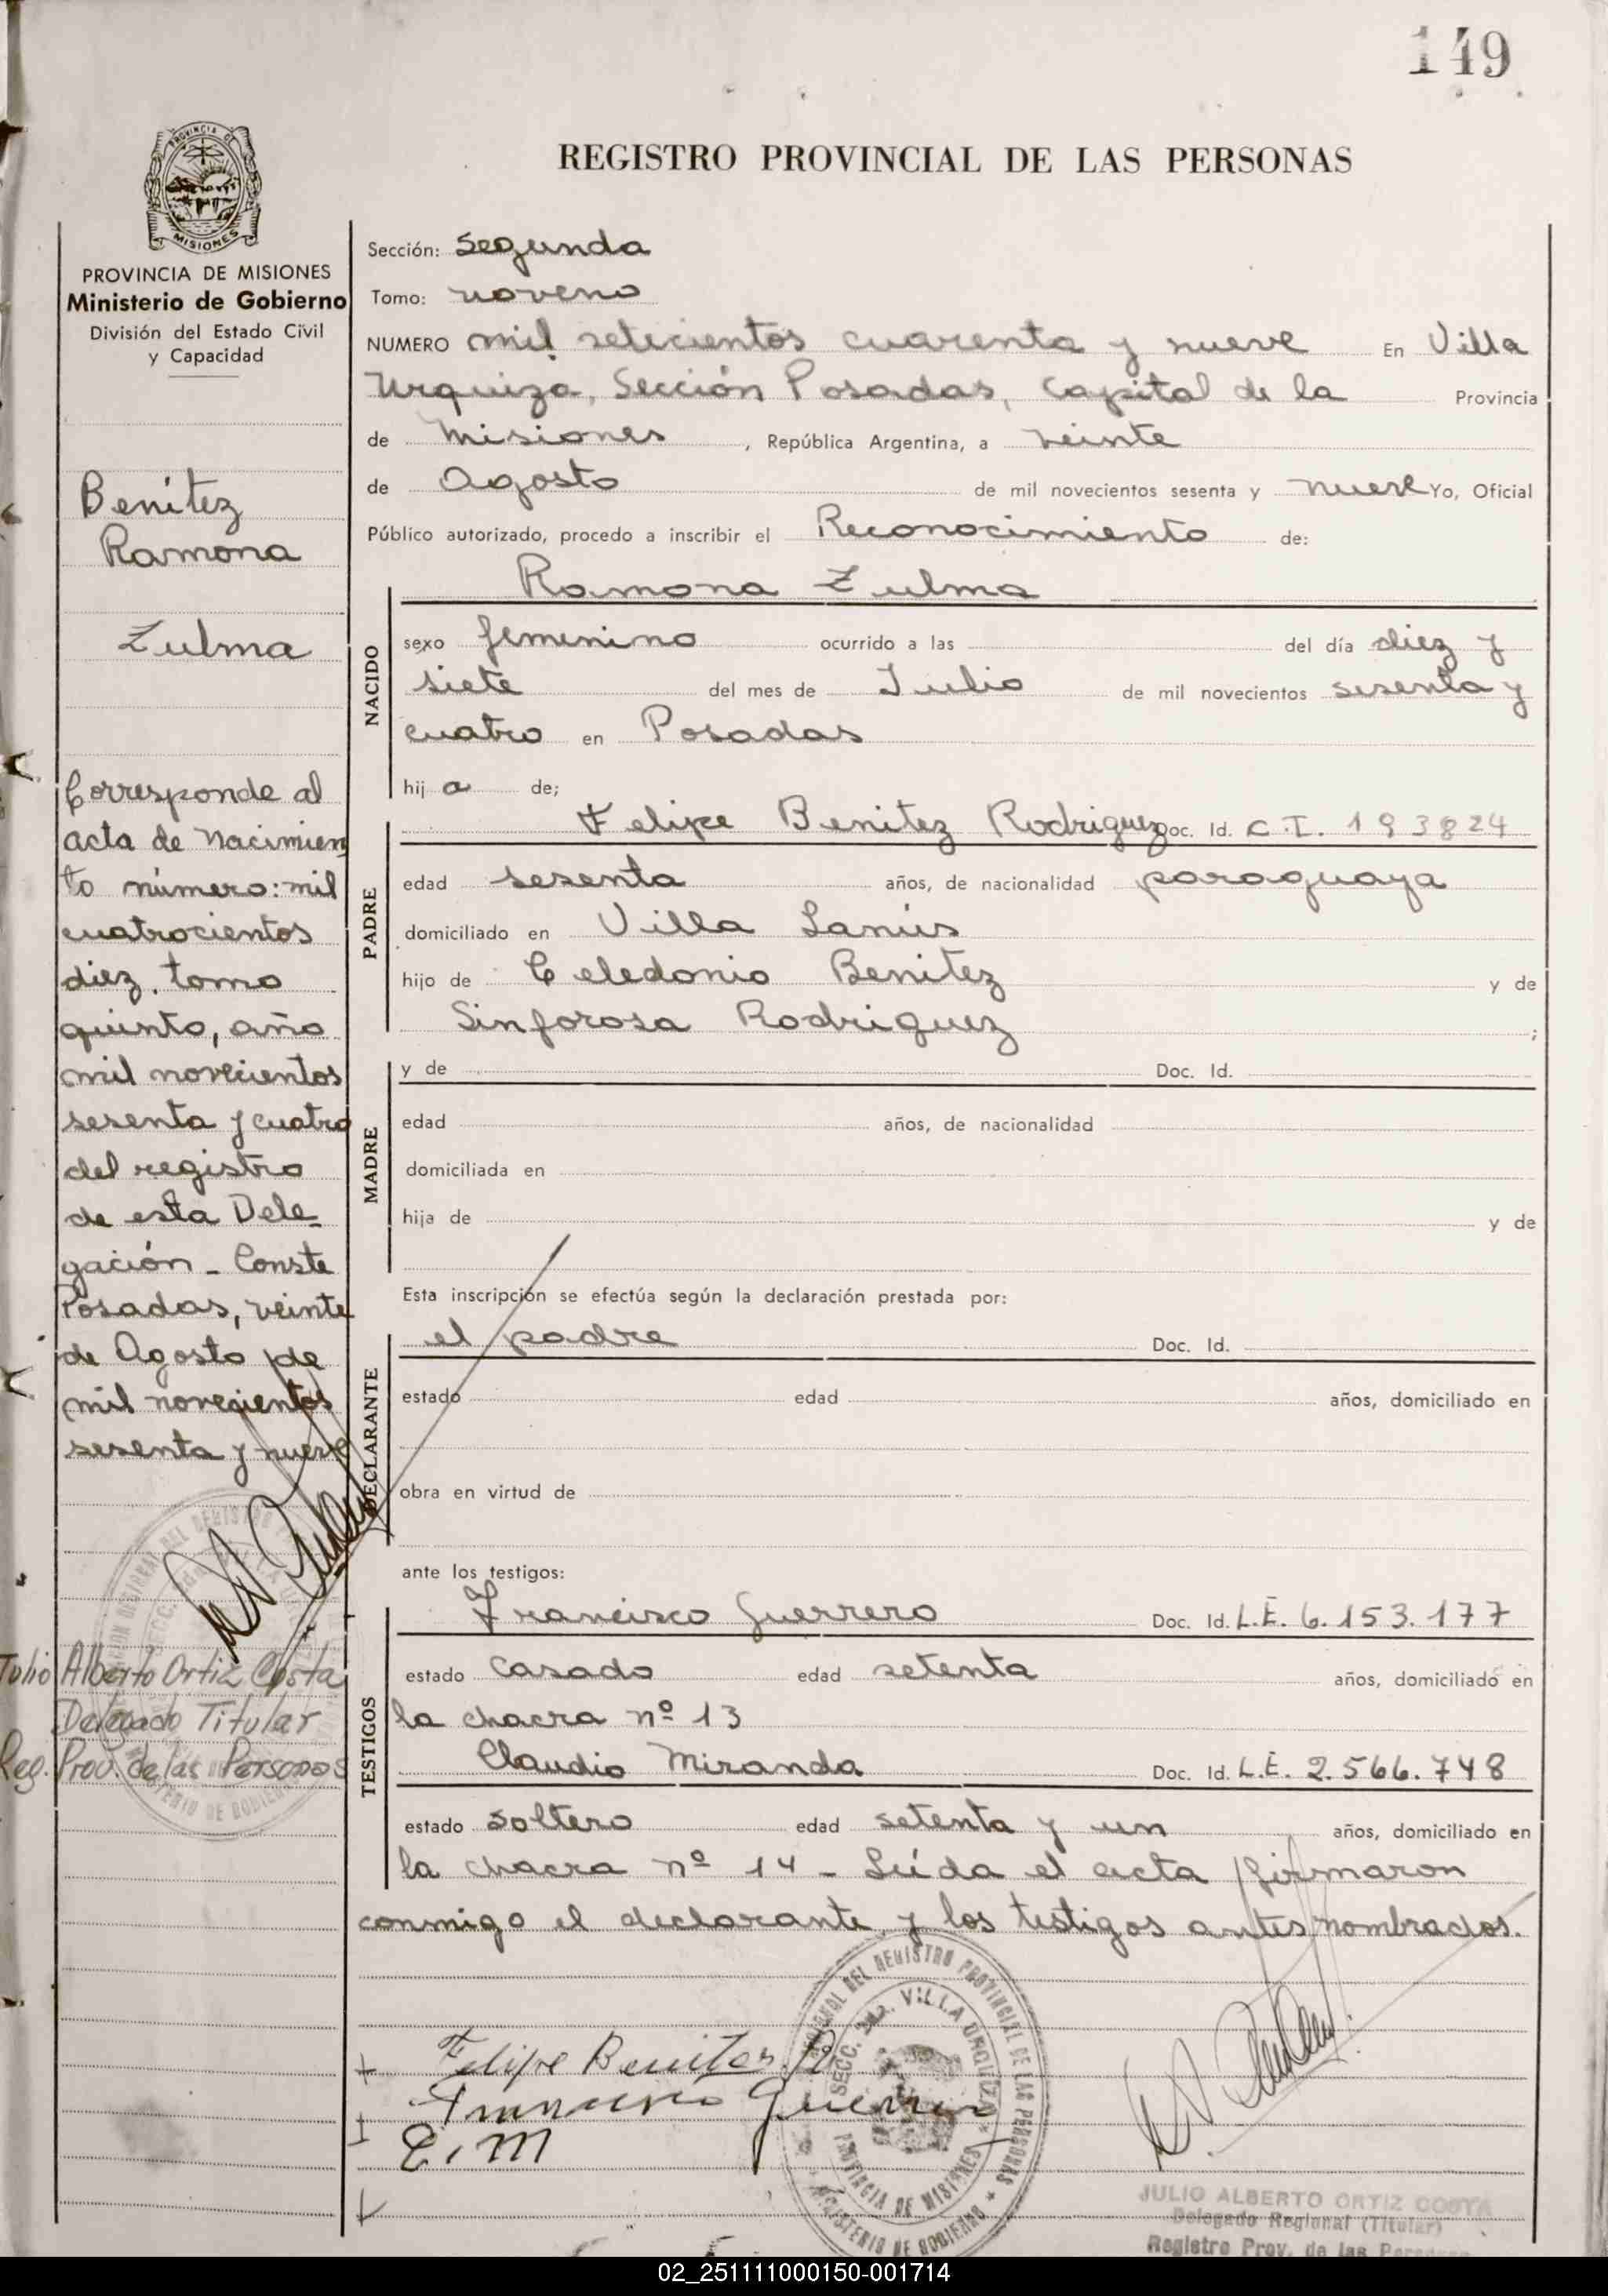 149
PROVINCIA DE MISIONES
Ministerio de Gobierno
División del Estado Civil
y Capacidad
Benítez
Ramona
Zulma
Corresponde al
acta de Nacimien
to número: mil
cuatrocientos
diez, tomo
quinto, año
mil novecientos
sesenta y cuatro
del registro
de esta Dele_
gación - Conste
Posadas, veinte
de Agosto de
mil novecientos
sesenta y nueve
Julio Alberto Ortiz Costa
Delegado Titular
Reg. Prov. de las Personas
REGISTRO PROVINCIAL DE LAS PERSONAS
Sección: Segunda
Tomo: noveno
NUMERO mil setecientos cuarenta y nueve En Villa
Urquiza, Sección Posadas, Capital de la Provincia
de Misiones, República Argentina, a veinte
de Agosto de mil novecientos sesenta y nueve Yo, Oficial
Público autorizado, procedo a inscribir el Reconocimiento de:
Ramona Zulma
NACIDO
sexo femenino ocurrido a las del día diez y
siete del mes de Julio de mil novecientos sesenta y
cuatro en Posadas
hij a de;
PADRE
Felipe Benitez Rodriguez Doc. Id. C.I. 193824
edad sesenta años, de nacionalidad paraguaya
domiciliado en Villa Lanús
hijo de Celedonio Benitez y de
Sinforosa Rodriguez ;
MADRE
y de Doc. Id.
edad años, de nacionalidad
domiciliada en
hija de y de
Esta inscripción se efectúa según la declaración prestada por:
DECLARANTE
el padre Doc. Id.
estado edad años, domiciliado en
obra en virtud de
ante los testigos:
TESTIGOS
Francisco Guerrero Doc. Id. L.E. 6.153.177
estado casado edad setenta años, domiciliado en
la chacra nº 13
Claudio Miranda Doc. Id. L.E. 2.566.748
estado soltero edad setenta y un años, domiciliado en
la chacra nº 14 - Leída el acta firmaron
conmigo el declarante y los testigos antes nombrados.
Felipe Benites R
Francisco Guerrero
C.M
SECC. VILLA URQUIZA
PROVINCIA DE MISIONES
REGIONAL DEL REGISTRO PROVINCIAL DE LAS PERSONAS
MINISTERIO DE GOBIERNO
JULIO ALBERTO ORTIZ COSTA
Delegado Regional (Titular)
Registro Prov. de las Personas
02_251111000150-001714